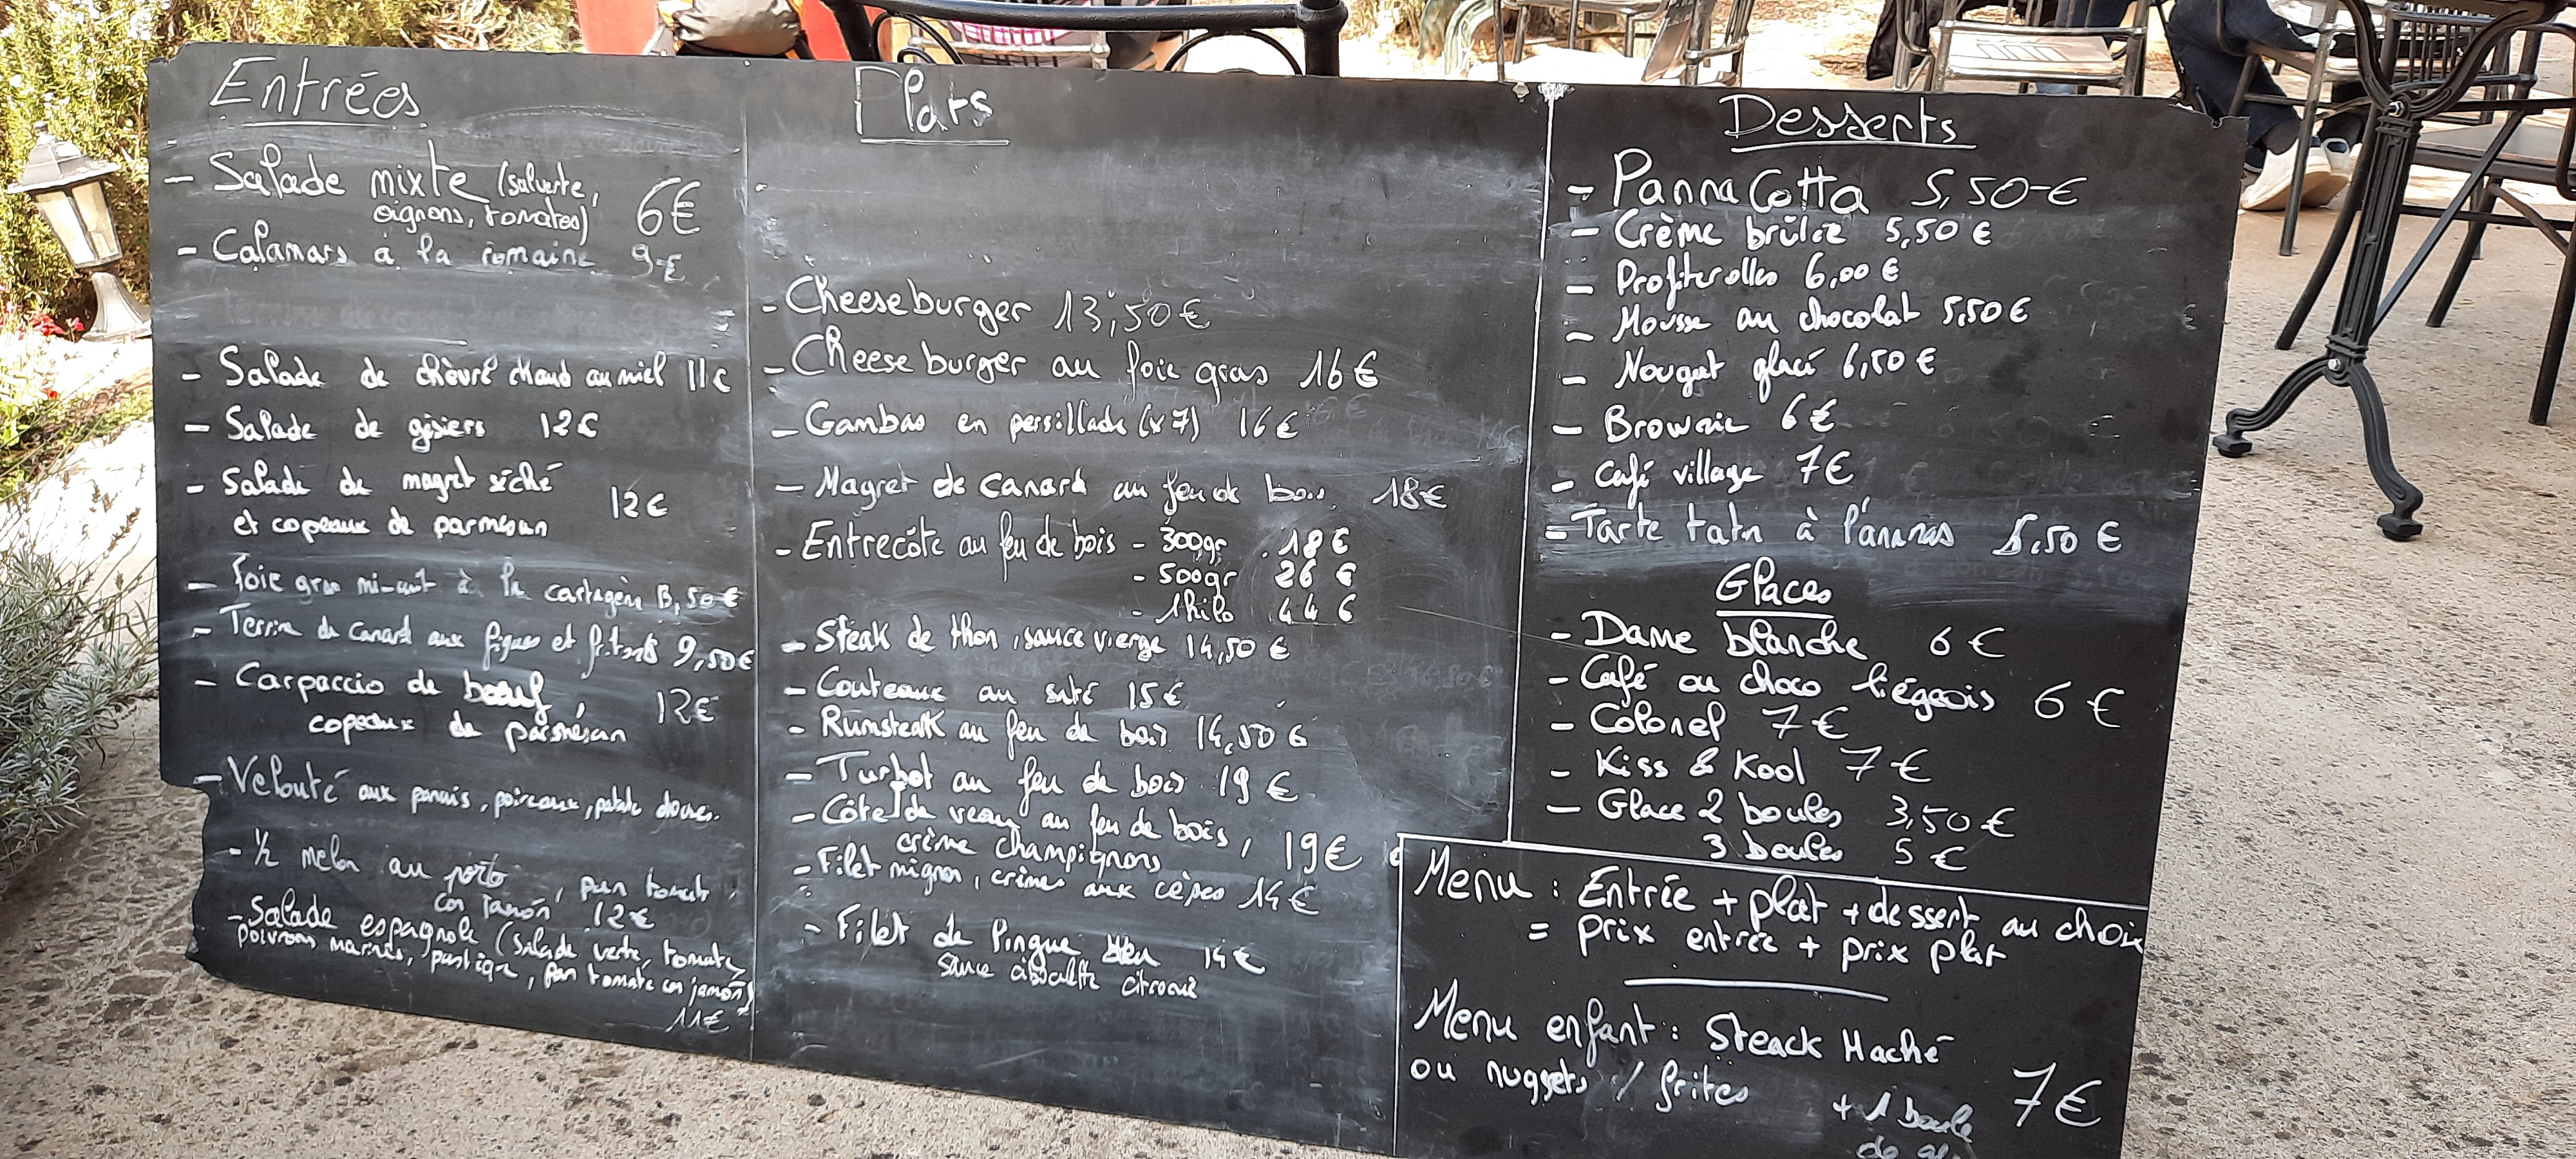 Entrées
- Salade mixte (salverte,
oignons, tomates) 6€
- Calamars à la romaine 9€
- Salade de chèvre chaud au miel 11€
- Salade de gésiers 12€
- Salade de magret séché
et copeaux de parmesan 12€
- Foie gras mi-cuit à la cartagène 13,50€
- Terrine de canard aux figues et 9,50€
- Carpaccio de bœuf,
copeaux de parmesan 12€
- Velouté aux panais, poireaux, patate douce.
- 1/2 melon au porto, pan tomate,
con jamón 12€
- Salade espagnole (salade verte, tomate,
poivrons marinés, pastèque, pan tomate con jamón)
11€
Plats
- Cheeseburger 13,50€
- Cheeseburger au foie gras 16€
- Gambas en persillade (x7) 16€
- Magret de canard au feu de bois 18€
- Entrecôte au feu de bois - 300gr 18€
- 500gr 26€
- 1kilo 44€
- Steak de thon, sauce vierge 14,50€
- Couteaux au saté 15€
- Rumsteak au feu de bois 14,50€
- Turbot au feu de bois 19€
- Côte de veau au feu de bois,
crème champignons 19€
- Filet mignon, crème aux cèpes 14€
- Filet de 14€
sauce ciboulette citronné
Desserts
- Panna Cotta 5,50€
- Crème brûlée 5,50€
- Profiterolles 6,00€
- Mousse au chocolat 5,50€
- Nougat glacé 6,50€
- Brownie 6€
- Café village 7€
- Tarte tatin à l'ananas 5,50€
Glaces
- Dame blanche 6€
- Café ou choco liégeois 6€
- Colonel 7€
- Kiss & Kool 7€
- Glace 2 boules 3,50€
3 boules 5€
Menu : Entrée + plat + dessert au choix
= prix entrée + prix plat
Menu enfant : Steack Haché
ou nuggets / frites 7€
+ 1 boule
de